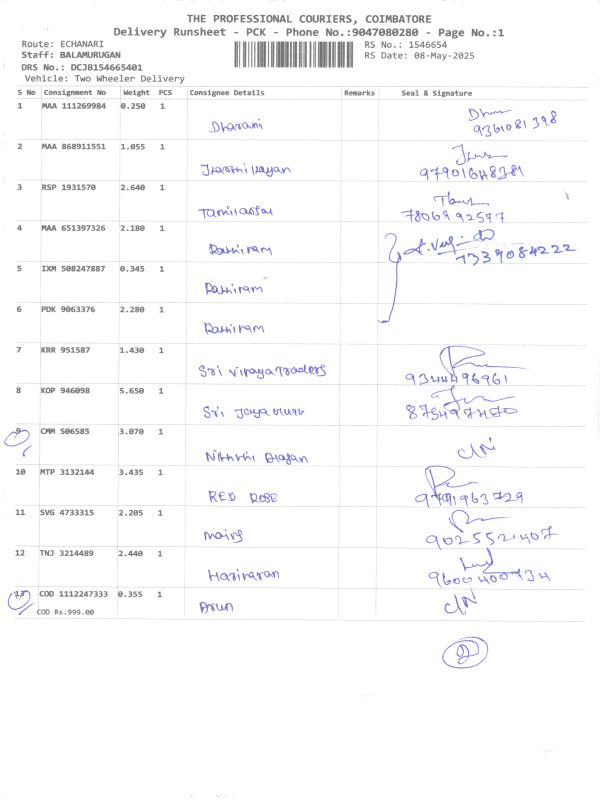 THE PROFESSIONAL COURIERS, COIMBATORE
Delivery Runsheet - PCK - Phone No.:9047080280 - Page No.:1
Route: ECHANARI RS No.: 1546654
Staff: BALAMURUGAN RS Date: 08-May-2025
DRS No.: DCJB154665401
Vehicle: Two Wheeler Delivery
S No Consignment No Weight PCS Consignee Details Remarks Seal & Signature
1 MAA 111269984 0.250 1
Dharani 9361081398
2 MAA 868911551 1.055 1
97901648381
3 RSP 1931570 2.640 1
7806992597
4 MAA 651397326 2.180 1
7339084222
5 IXM 508247887 0.345 1
6 PDK 9063376 2.280 1
7 KRR 951587 1.430 1
Sri Vinaya Traders 9344496961
8 KOP 946098 5.650 1
Sri Jaya 875497470
9 CMM 506585 3.070 1
10 MTP 3132144 3.435 1
RED ROSE 9791963729
11 SVG 4733315 2.205 1
9025521407
12 TNJ 3214489 2.440 1
9600400934
13 COD 1112247333 0.355 1
Arun
COD Rs.999.00
2